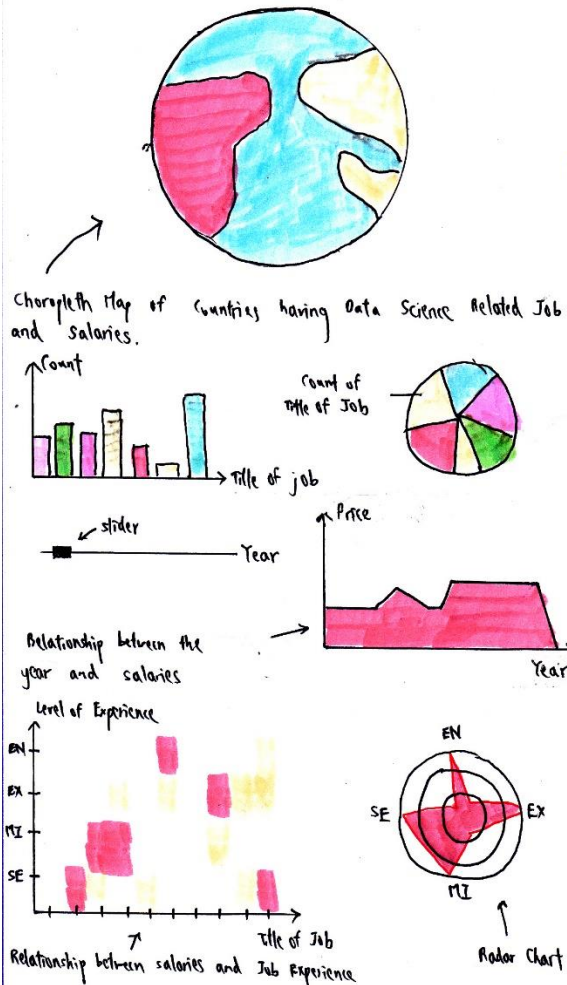 Choropleth Map of Countries having Data Science Related Job
and salaries.
Count
Title of job
Count of
Title of Job
slider
Year
Price
Year
Relationship between the
year and salaries
Level of Experience
EN
EX
MI
SE
Title of Job
Relationship between salaries and Job Experience
EN
SE
EX
MI
Radar Chart